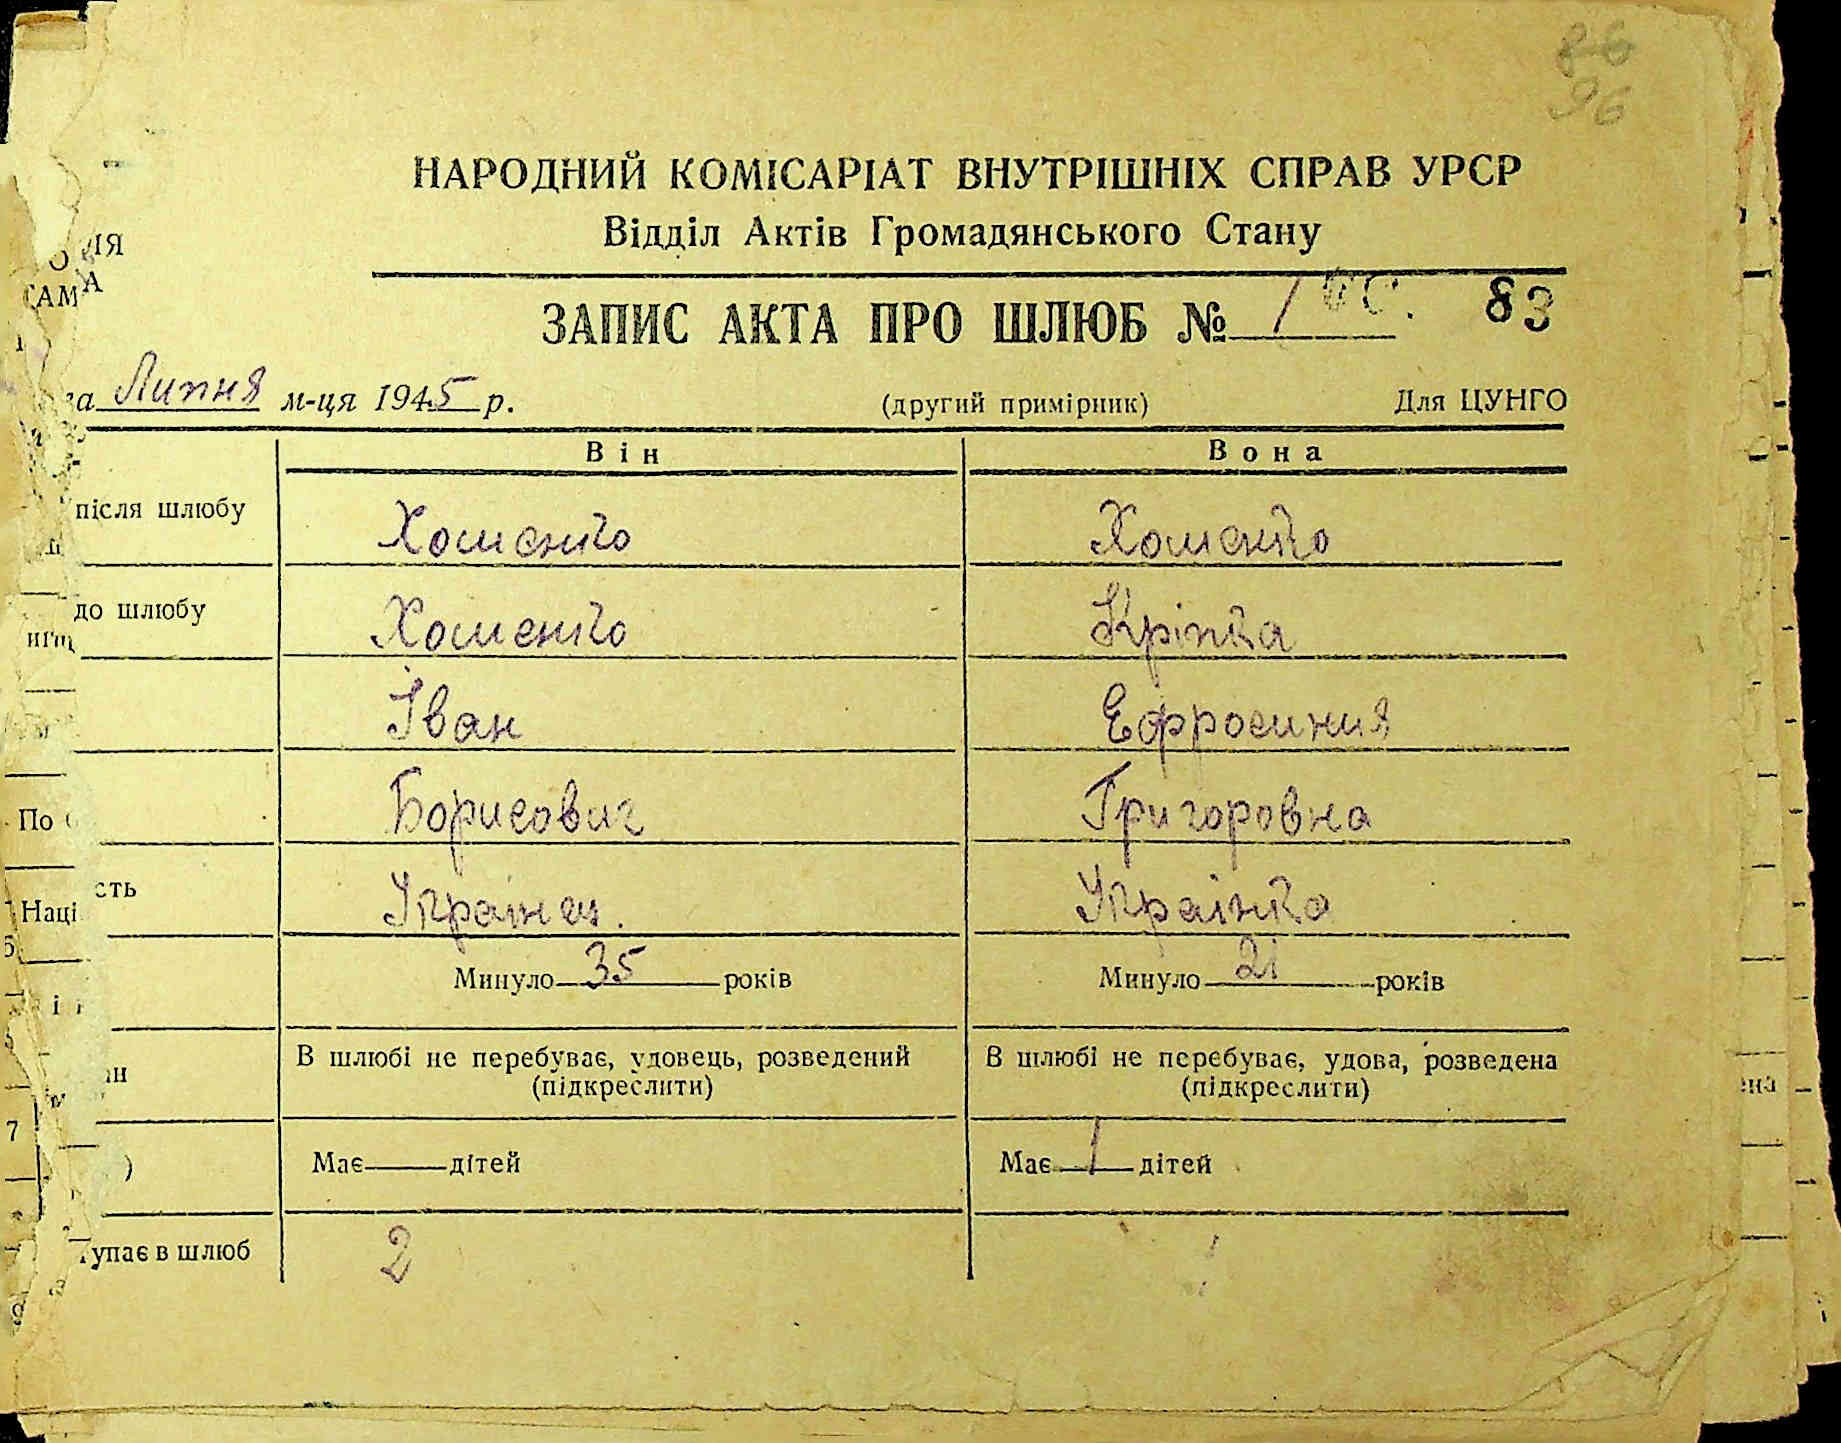 86
96
НАРОДНИЙ КОМІСАРІАТ ВНУТРІШНІХ СПРАВ УРСР
Відділ Актів Громадянського Стану
ЗАПИС АКТА ПРО ШЛЮБ № 83
Липня м-ця 1945 р. (другий примірник) Для ЦУНГО
Він Вона
після шлюбу Хоменко Хоменко
до шлюбу Хоменко Кріпка
Іван Ефросиния
По Борисович Григоровна
Українец. Українка
Минуло 35 років Минуло 21 років
В шлюбі не перебуває, удовець, розведений В шлюбі не перебуває, удова, розведена
(підкреслити) (підкреслити)
Має дітей Має 1 дітей
в шлюб 2